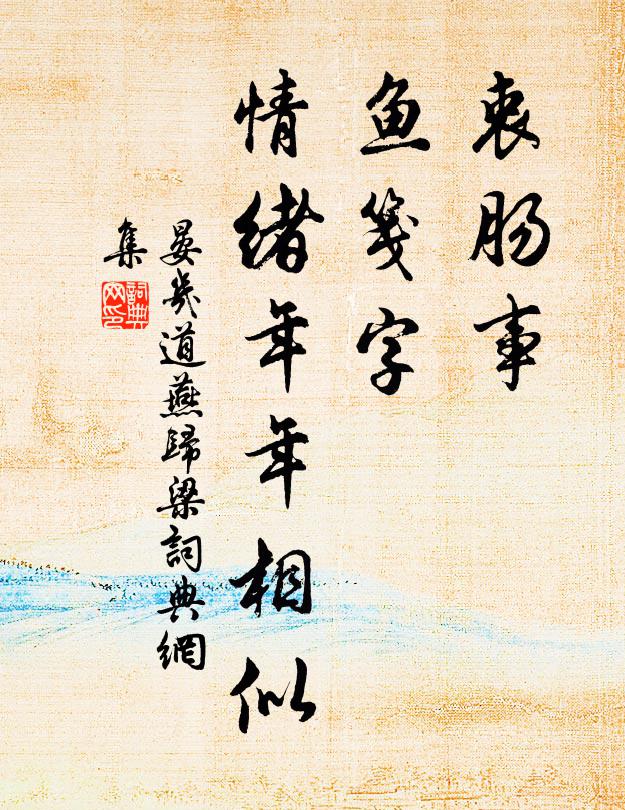 衷肠事
鱼笺字
情绪年年相似
晏几道燕歸梁詞典網
集
詞典
网印